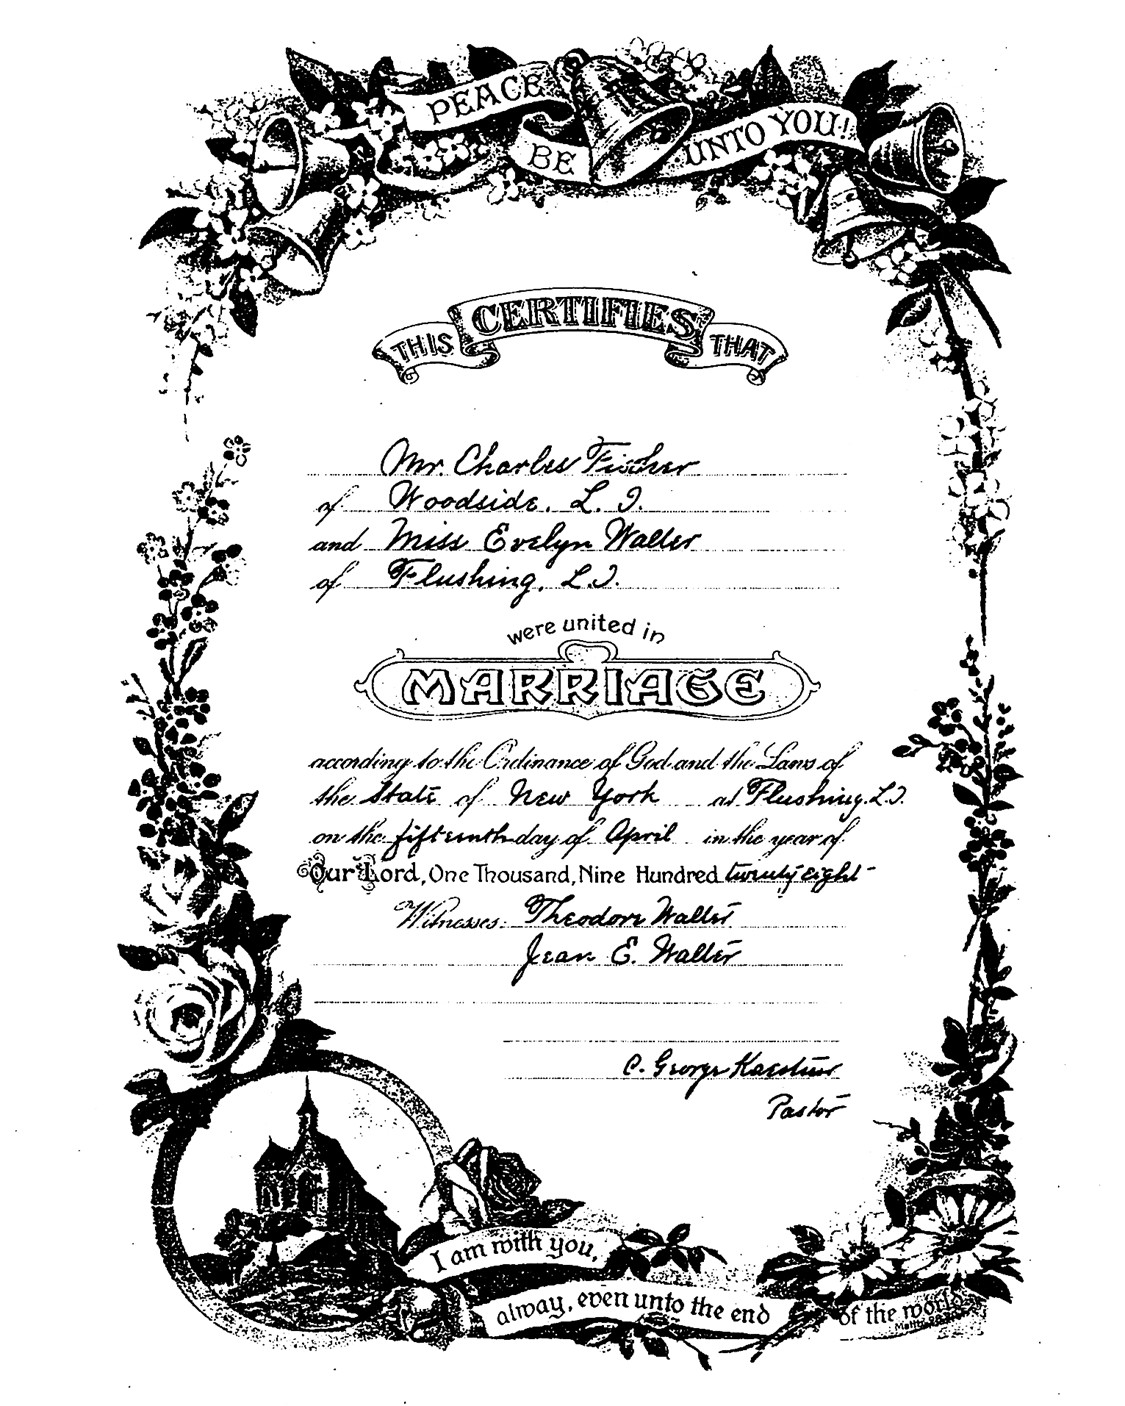 PEACE BE UNTO YOU!
THIS CERTIFIES THAT
Mr. Charles Fischer
of Woodside, L. I.
and Miss Evelyn Walter
of Flushing, L.I.
were united in
MARRIAGE
according to the Ordinance of God and the Laws of
the State of New York at Flushing, L.I.
on the fifteenth day of April in the year of
Our Lord, One Thousand, Nine Hundred twenty eight
Witnesses: Theodore Walter
Jean E. Walter
C. George
Pastor
I am with you,
alway, even unto the end of the world.